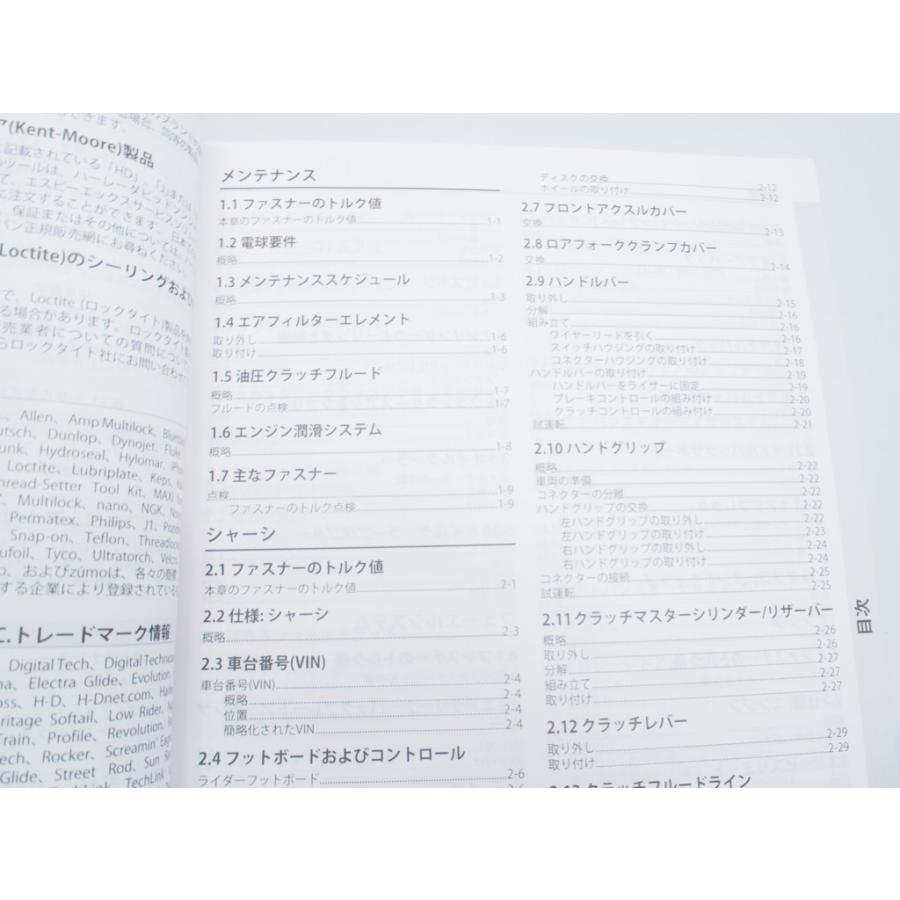 ア(Kent-Moore)製品
に記載されている「HD」、
Loctite)のシーリングおよび
で、Loctite (ロックタイト)製品を
る場合があります。ロックタイト
売業者についての質問につい
らロックタイト社にお問い合わせ
Allen、Amp Multilock、
utsch、Dunlop、Dynojet、Fluke
unk、Hydroseal、Hylomar、
Loctite、Lubriplate、Keps、
hread-Setter Tool Kit、MAXI
Multilock、nano、NGK、
Permatex、Philips、J1、
Snap-on、Teflon、
ufoil、Tyco、Ultratorch、Velcro、
o、およびzūmoは、各々の
する企業により登録されている
C.トレードマーク情報
Digital Tech、Digital Technician
na、Electra Glide、Evolution、
oss、H-D、H-Dnet.com、
eritage Softail、Low Rider、
Train、Profile、Revolution、
ech、Rocker、Screamin' Eagle
Glide、Street Rod、Sun
Link、TechLink
メンテナンス
1.1 ファスナーのトルク値
本章のファスナーのトルク値 1-1
1.2 電球要件
概略 1-2
1.3 メンテナンススケジュール
概略 1-3
1.4 エアフィルターエレメント
取り外し 1-6
取り付け 1-6
1.5 油圧クラッチフルード
概略 1-7
フルードの点検 1-7
1.6 エンジン潤滑システム
概略 1-8
1.7 主なファスナー
点検 1-9
ファスナーのトルク点検 1-9
シャーシ
2.1 ファスナーのトルク値
本章のファスナーのトルク値 2-1
2.2 仕様: シャーシ
概略 2-3
2.3 車台番号(VIN)
車台番号(VIN) 2-4
概略 2-4
位置 2-4
簡略化されたVIN 2-4
2.4 フットボードおよびコントロール
ライダーフットボード 2-6
2-6
ディスクの交換 2-12
ホイールの取り付け 2-12
2.7 フロントアクスルカバー
交換 2-13
2.8 ロアフォーククランプカバー
交換 2-14
2.9 ハンドルバー
取り外し 2-15
分解 2-16
組み立て 2-16
ワイヤーリードを引く 2-16
スイッチハウジングの取り付け 2-17
コネクターハウジングの取り付け 2-18
ハンドルバーの取り付け 2-19
ハンドルバーをライザーに固定 2-19
ブレーキコントロールの組み付け 2-20
クラッチコントロールの組み付け 2-20
試運転 2-21
2.10 ハンドグリップ
概略 2-22
車両の準備 2-22
コネクターの分離 2-22
ハンドグリップの交換 2-22
左ハンドグリップの取り外し 2-22
左ハンドグリップの取り付け 2-23
右ハンドグリップの取り外し 2-24
右ハンドグリップの取り付け 2-24
コネクターの接続 2-25
試運転 2-25
2.11 クラッチマスターシリンダー/リザーバー
概略 2-26
取り外し 2-26
分解 2-27
組み立て 2-27
取り付け 2-27
2.12 クラッチレバー
取り外し 2-29
取り付け 2-29
2.13 クラッチフルードライン
目次